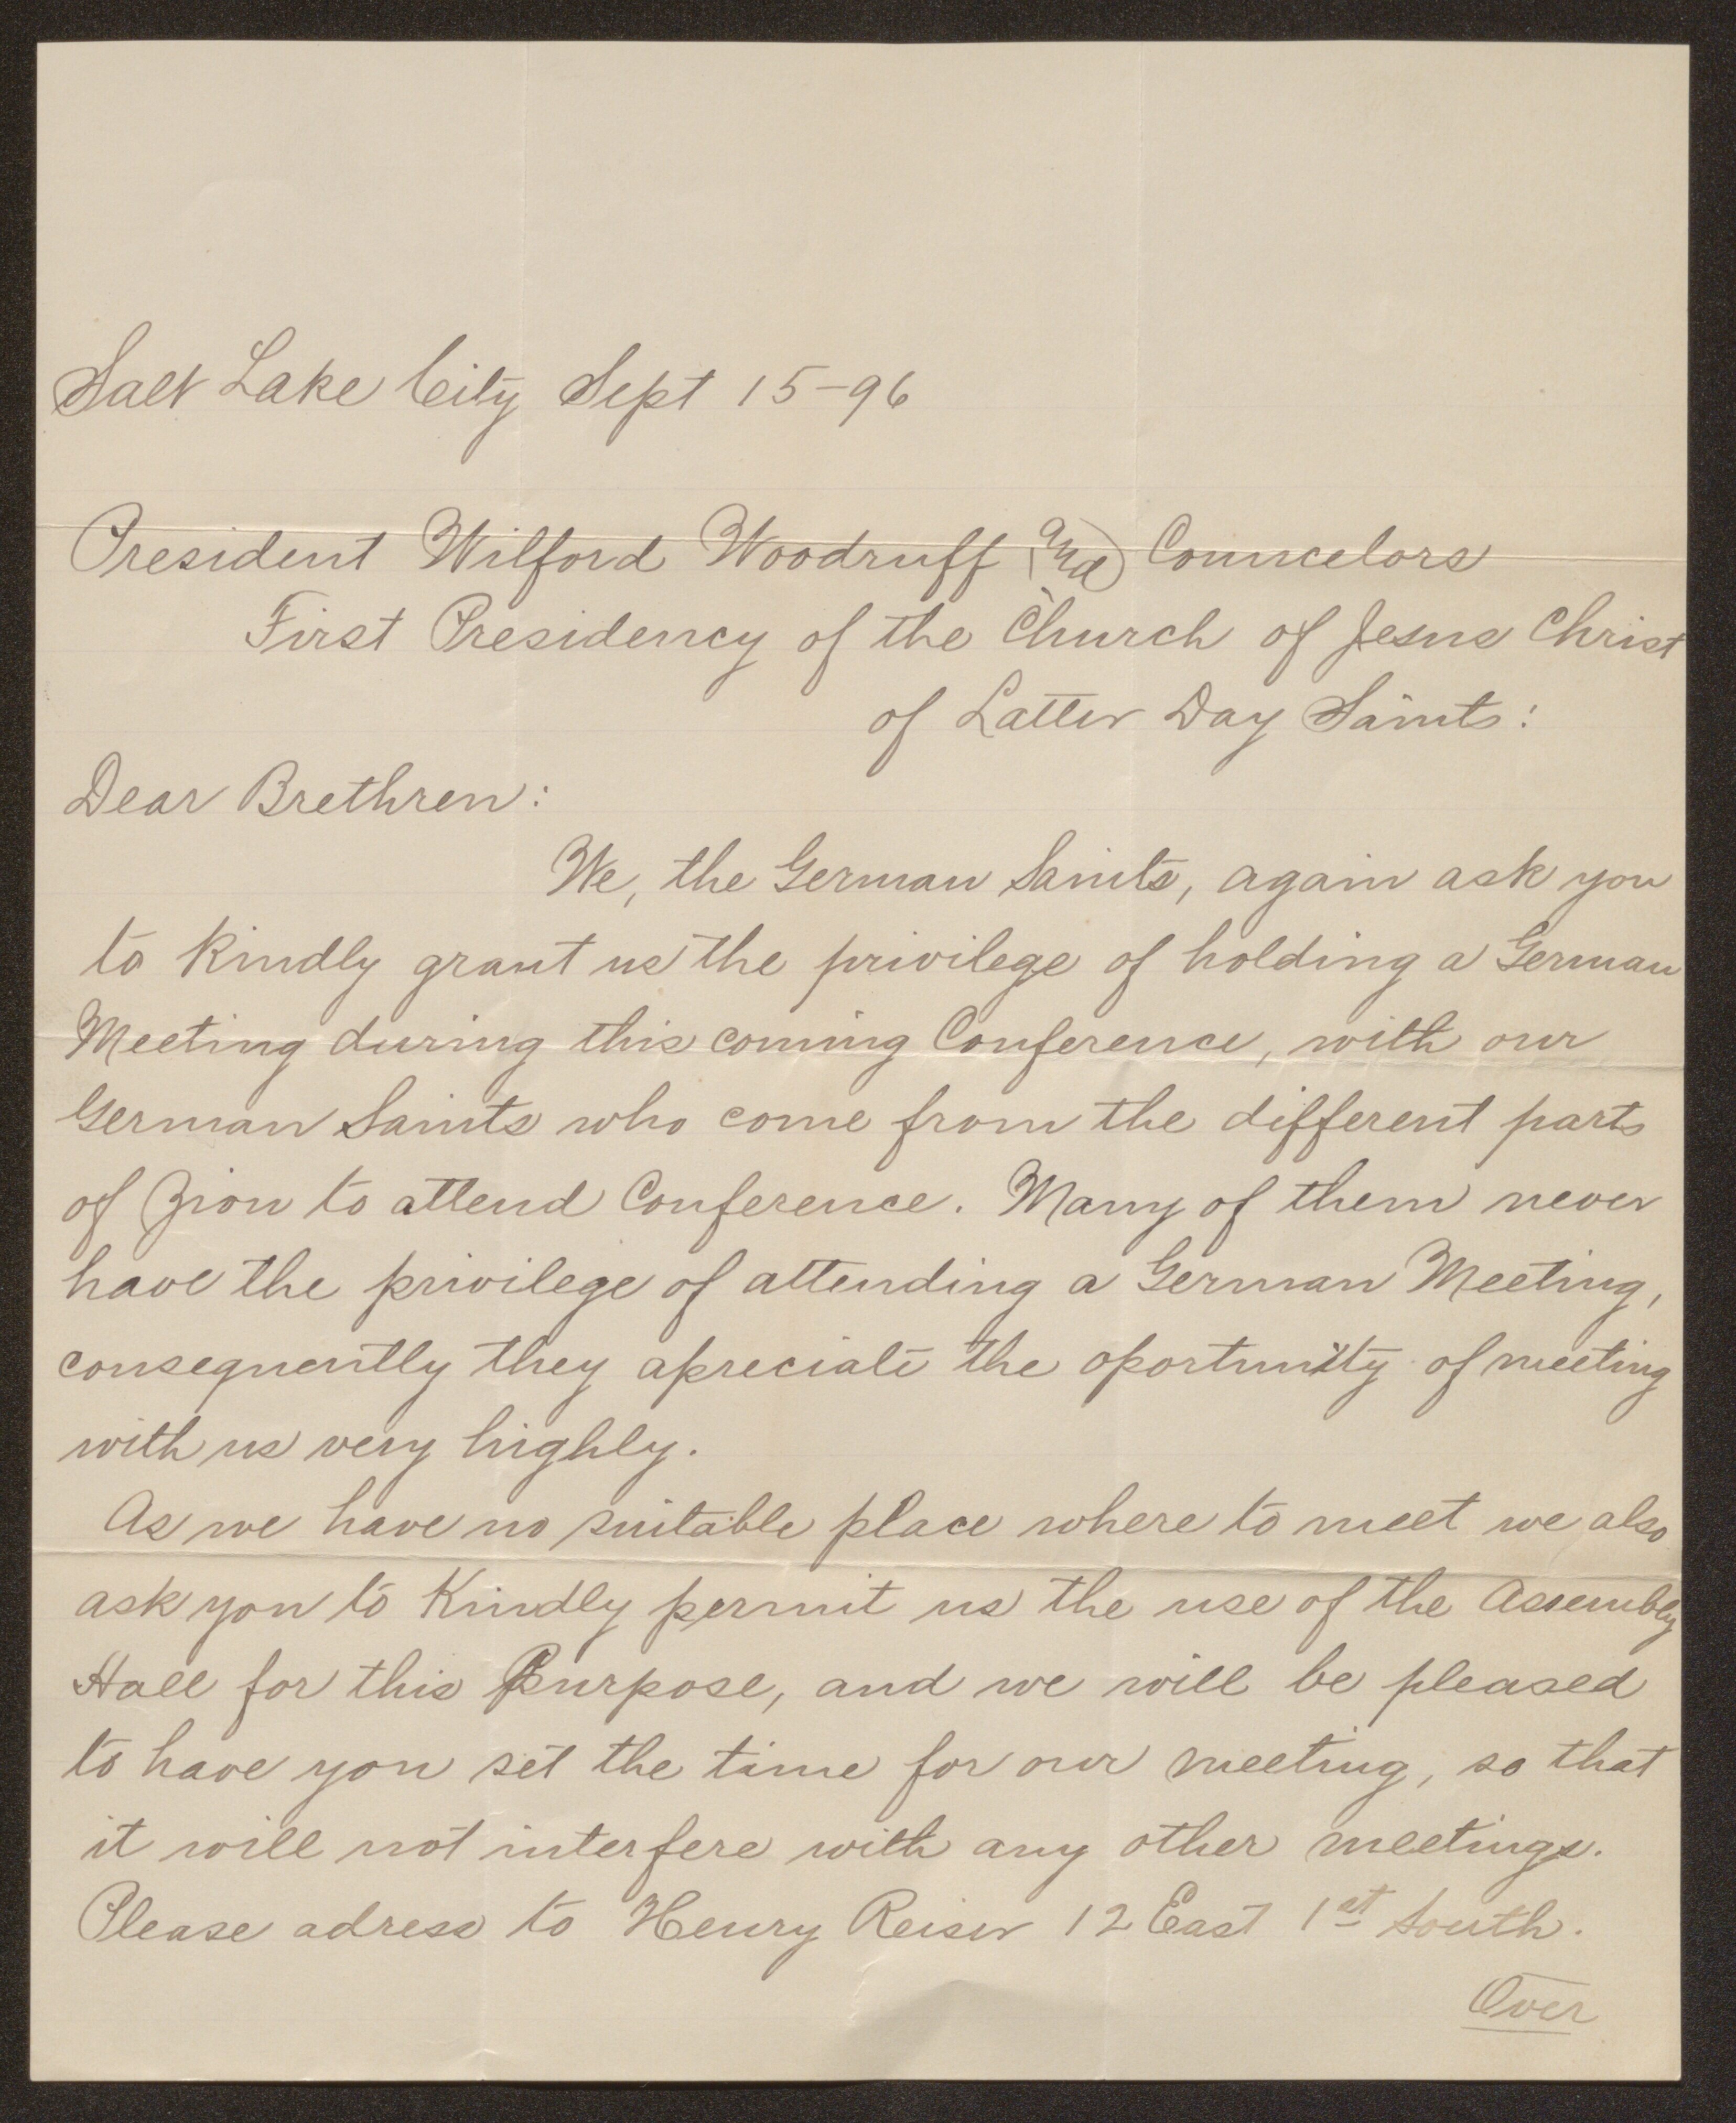 Salt Lake City Sept 15-96
President Wilford Woodruff and Councelors
First Presidency of the Church of Jesus Christ
of Latter Day Saints:
Dear Brethren:
We, the German Saints, again ask you
to kindly grant us the privilege of holding a German
Meeting during this coming Conference, with our
German Saints who come from the different parts
of Zion to attend Conference. Many of them never
have the privilege of attending a German Meeting,
consequently they apreciate the oportunity of meeting
with us very highly.
As we have no suitable place where to meet we also
ask you to Kindly permit us the use of the Assembly
Hall for this Purpose, and we will be pleased
to have you set the time for our meeting, so that
it will not interfere with any other meetings.
Please adress to Henry Reiser 12 East 1st South.
Over